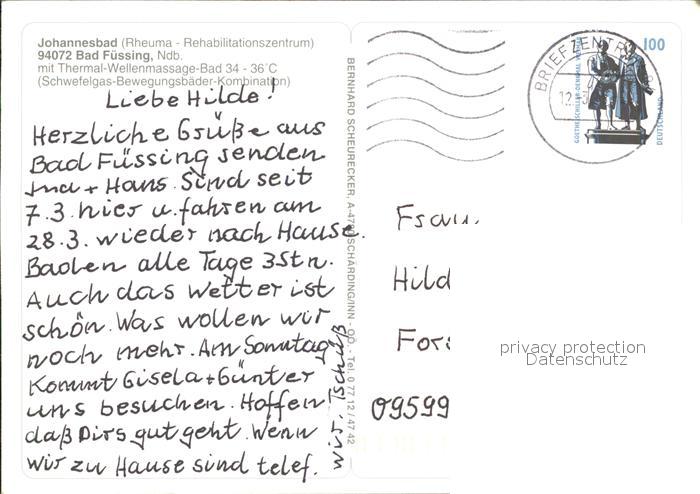 Johannesbad (Rheuma - Rehabilitationszentrum)
94072 Bad Füssing, Ndb.
mit Thermal-Wellenmassage-Bad 34 - 36°C
(Schwefelgas-Bewegungsbäder-Kombination)
Liebe Hilde!
Herzliche Grüße aus
Bad Füssing senden
Ima + Hans. Sind seit
7.3. hier u. fahren am
28.3. wieder nach Hause.
Baden alle Tage 3 Stn.
Auch das Wetter ist
schön. Was wollen wir
noch mehr. Am Sonntag
kommt Gisela + Günter
uns besuchen. Hoffen
daß Dirs gut geht. Wenn
wir zu Hause sind telef.
wir. Tschüß
BERNHARD SCHEURECKER, SCHÄRDING/INN - OÖ. - Tel. 0 77 12 / 47 42
BRIEFZENTR
12.
GOETHE-SCHILLER-DENKMAL WEIMAR
100
DEUTSCHLAND
Frau
Hild
Fors
09599
privacy protection
Datenschutz